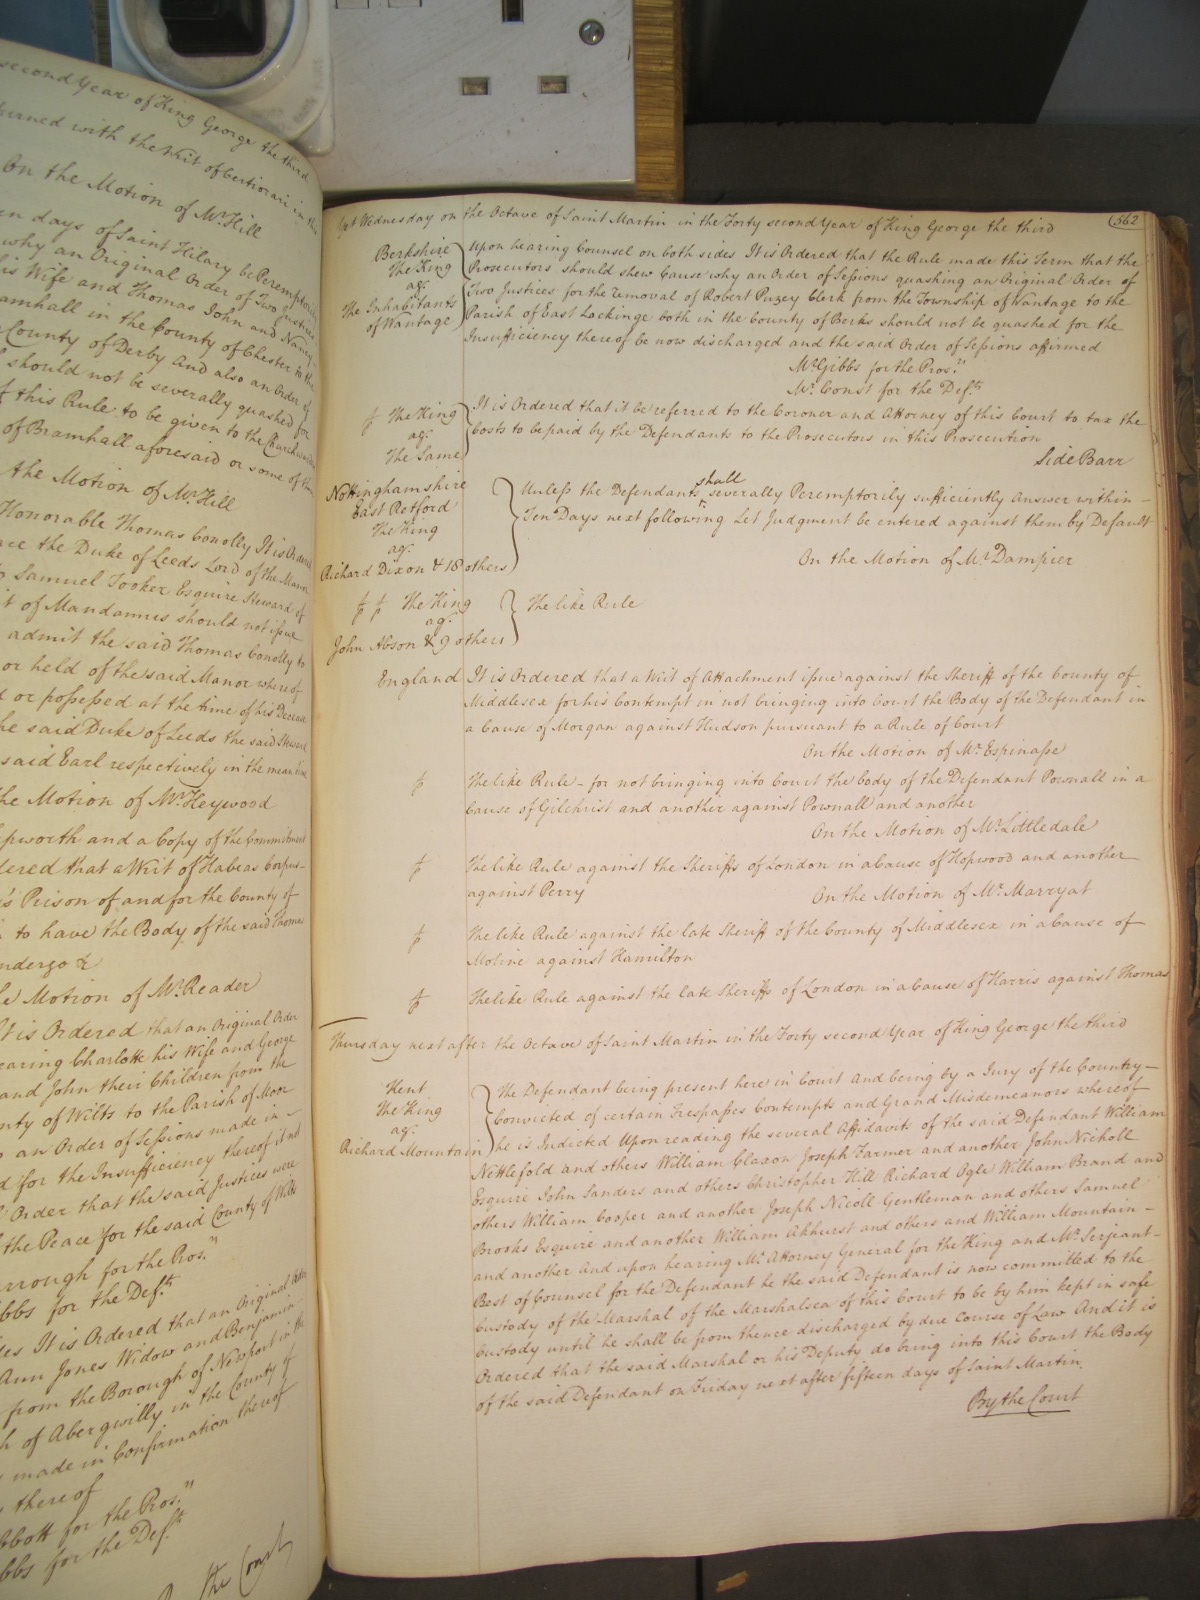 second Year of King George the third
turned with the Writ of Certiorari in this
On the Motion of Mr. Hill
en days of Saint Hilary be Peremptorily
why an Original Order of Two Justices
his Wife and Thomas John and Nancy
amhall in the County of Chester to the
County of Derby And also an Order of
should not be severally quashed for
f this Rule to be given to the Churchwardens
of Bramhall aforesaid or some of them
the Motion of Mr. Hill
Honorable Thomas Conolly It is Ordered
ace the Duke of Leeds Lord of the Manor
Samuel Tooker Esquire Steward of
t of Mandamus should not issue
admit the said Thomas Conolly to
or held of the said Manor whereof
d or possessed at the time of his Decease
he said Duke of Leeds the said Steward
said Earl respectively in the mean time
he Motion of Mr. Heywood
pworth and a Copy of the Commitment
dered that a Writ of Habeas Corpus
's Prison of and for the County of
to have the Body of the said Thomas
ndergo &c
e Motion of Mr. Reader
It is Ordered that an Original Order
earing Charlotte his Wife and George
and John their Children from the
nty of Wilts to the Parish of Moor
an Order of Sessions made in
d for the Insufficiency thereof it not
Order that the said Justices were
the Peace for the said County of Wilts
rrough for the Pros.rs
ibbs for the Def.ts
des It is Ordered that an Original Order
Ann Jones Widow and Benjamin
from the Borough of Newport in the
h of Abergwilly in the County of
made in Confirmation thereof
thereof
bbott for the Pros.rs
ibbs for the Def.ts
the Court
Yet Wednesday on the Octave of Saint Martin in the Forty second Year of King George the third
562
Berkshire
The King
ag.t
The Inhabitants
of Wantage
Upon hearing Counsel on both sides It is Ordered that the Rule made this Term that the
Prosecutors should shew Cause why an Order of Sessions quashing an Original Order of
Two Justices for the removal of Robert Puzey Clerk from the Township of Wantage to the
Parish of East Lockinge both in the County of Berks should not be quashed for the
Insufficiency thereof be now discharged and the said Order of Sessions affirmed
Mr. Gibbs for the Pros.rs
Mr. Const for the Def.ts
The King
ag.t
The Same
It is Ordered that it be referred to the Coroner and Attorney of this Court to tax the
Costs to be paid by the Defendants to the Prosecutors in this Prosecution
Side Barr
Nottinghamshire
East Retford
The King
ag.t
Richard Dixon & 18 others
shall
Unless the Defendants severally Peremptorily sufficiently answer within
Ten Days next following Let Judgment be entered against them by Default
On the Motion of Mr. Dampier
The King
ag.t
John Abson & 9 others
The like Rule
England
It is Ordered that a Writ of Attachment issue against the Sheriff of the County of
Middlesex for his Contempt in not bringing into Court the Body of the Defendant in
a Cause of Morgan against Hudson pursuant to a Rule of Court
On the Motion of Mr. Espinasse
The like Rule - for not bringing into Court the body of the Defendant Pownall in a
Cause of Gilchrist and another against Pownall and another
On the Motion of Mr. Littledale
The like Rule against the Sheriffs of London in a Cause of Hopwood and another
against Perry
On the Motion of Mr. Marryat
The like Rule against the late Sheriff of the County of Middlesex in a Cause of
Moline against Hamilton
The like Rule against the late Sheriffs of London in a Cause of Harris against Thomas
Thursday next after the Octave of Saint Martin in the Forty second Year of King George the third
Kent
The King
ag.t
Richard Mountain
The Defendant being present here in Court And being by a Jury of the Country
Convicted of certain Trespasses Contempts and Grand Misdemeanors whereof
he is Indicted Upon reading the several Affidavits of the said Defendant William
Nettlefold and others William Claxon Joseph Farmer and another John Nicholl
Esquire John Sanders and others Christopher Hill Richard Ogle William Brand and
others William Cooper and another Joseph Nicoll Gentleman and others Samuel
Brooks Esquire and another William Ashurst and others and William Mountain
and another And upon hearing Mr. Attorney General for the King and Mr. Serjeant
Best of Counsel for the Defendant he the said Defendant is now committed to the
Custody of the Marshal of the Marshalsea of this Court to be by him kept in safe
Custody until he shall be from thence discharged by due Course of Law And it is
Ordered that the said Marshal or his Deputy do bring into this Court the Body
of the said Defendant on Friday next after fifteen days of Saint Martin
By the Court